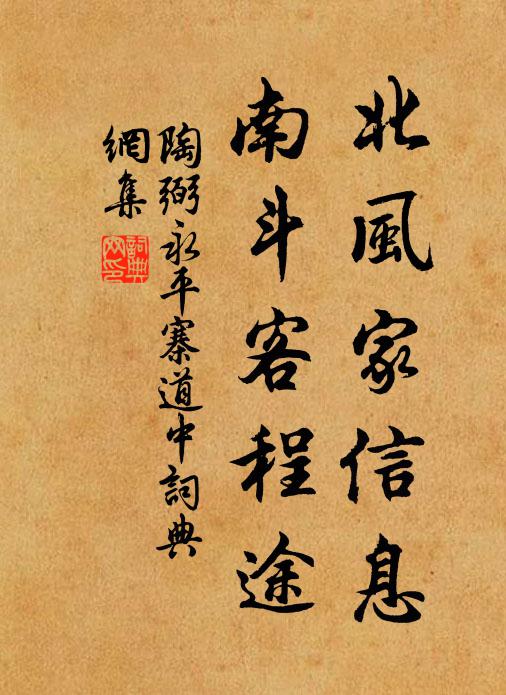 北風家信息
南斗客程途
陶弼永平寨道中詞典
網集
詞典
网印